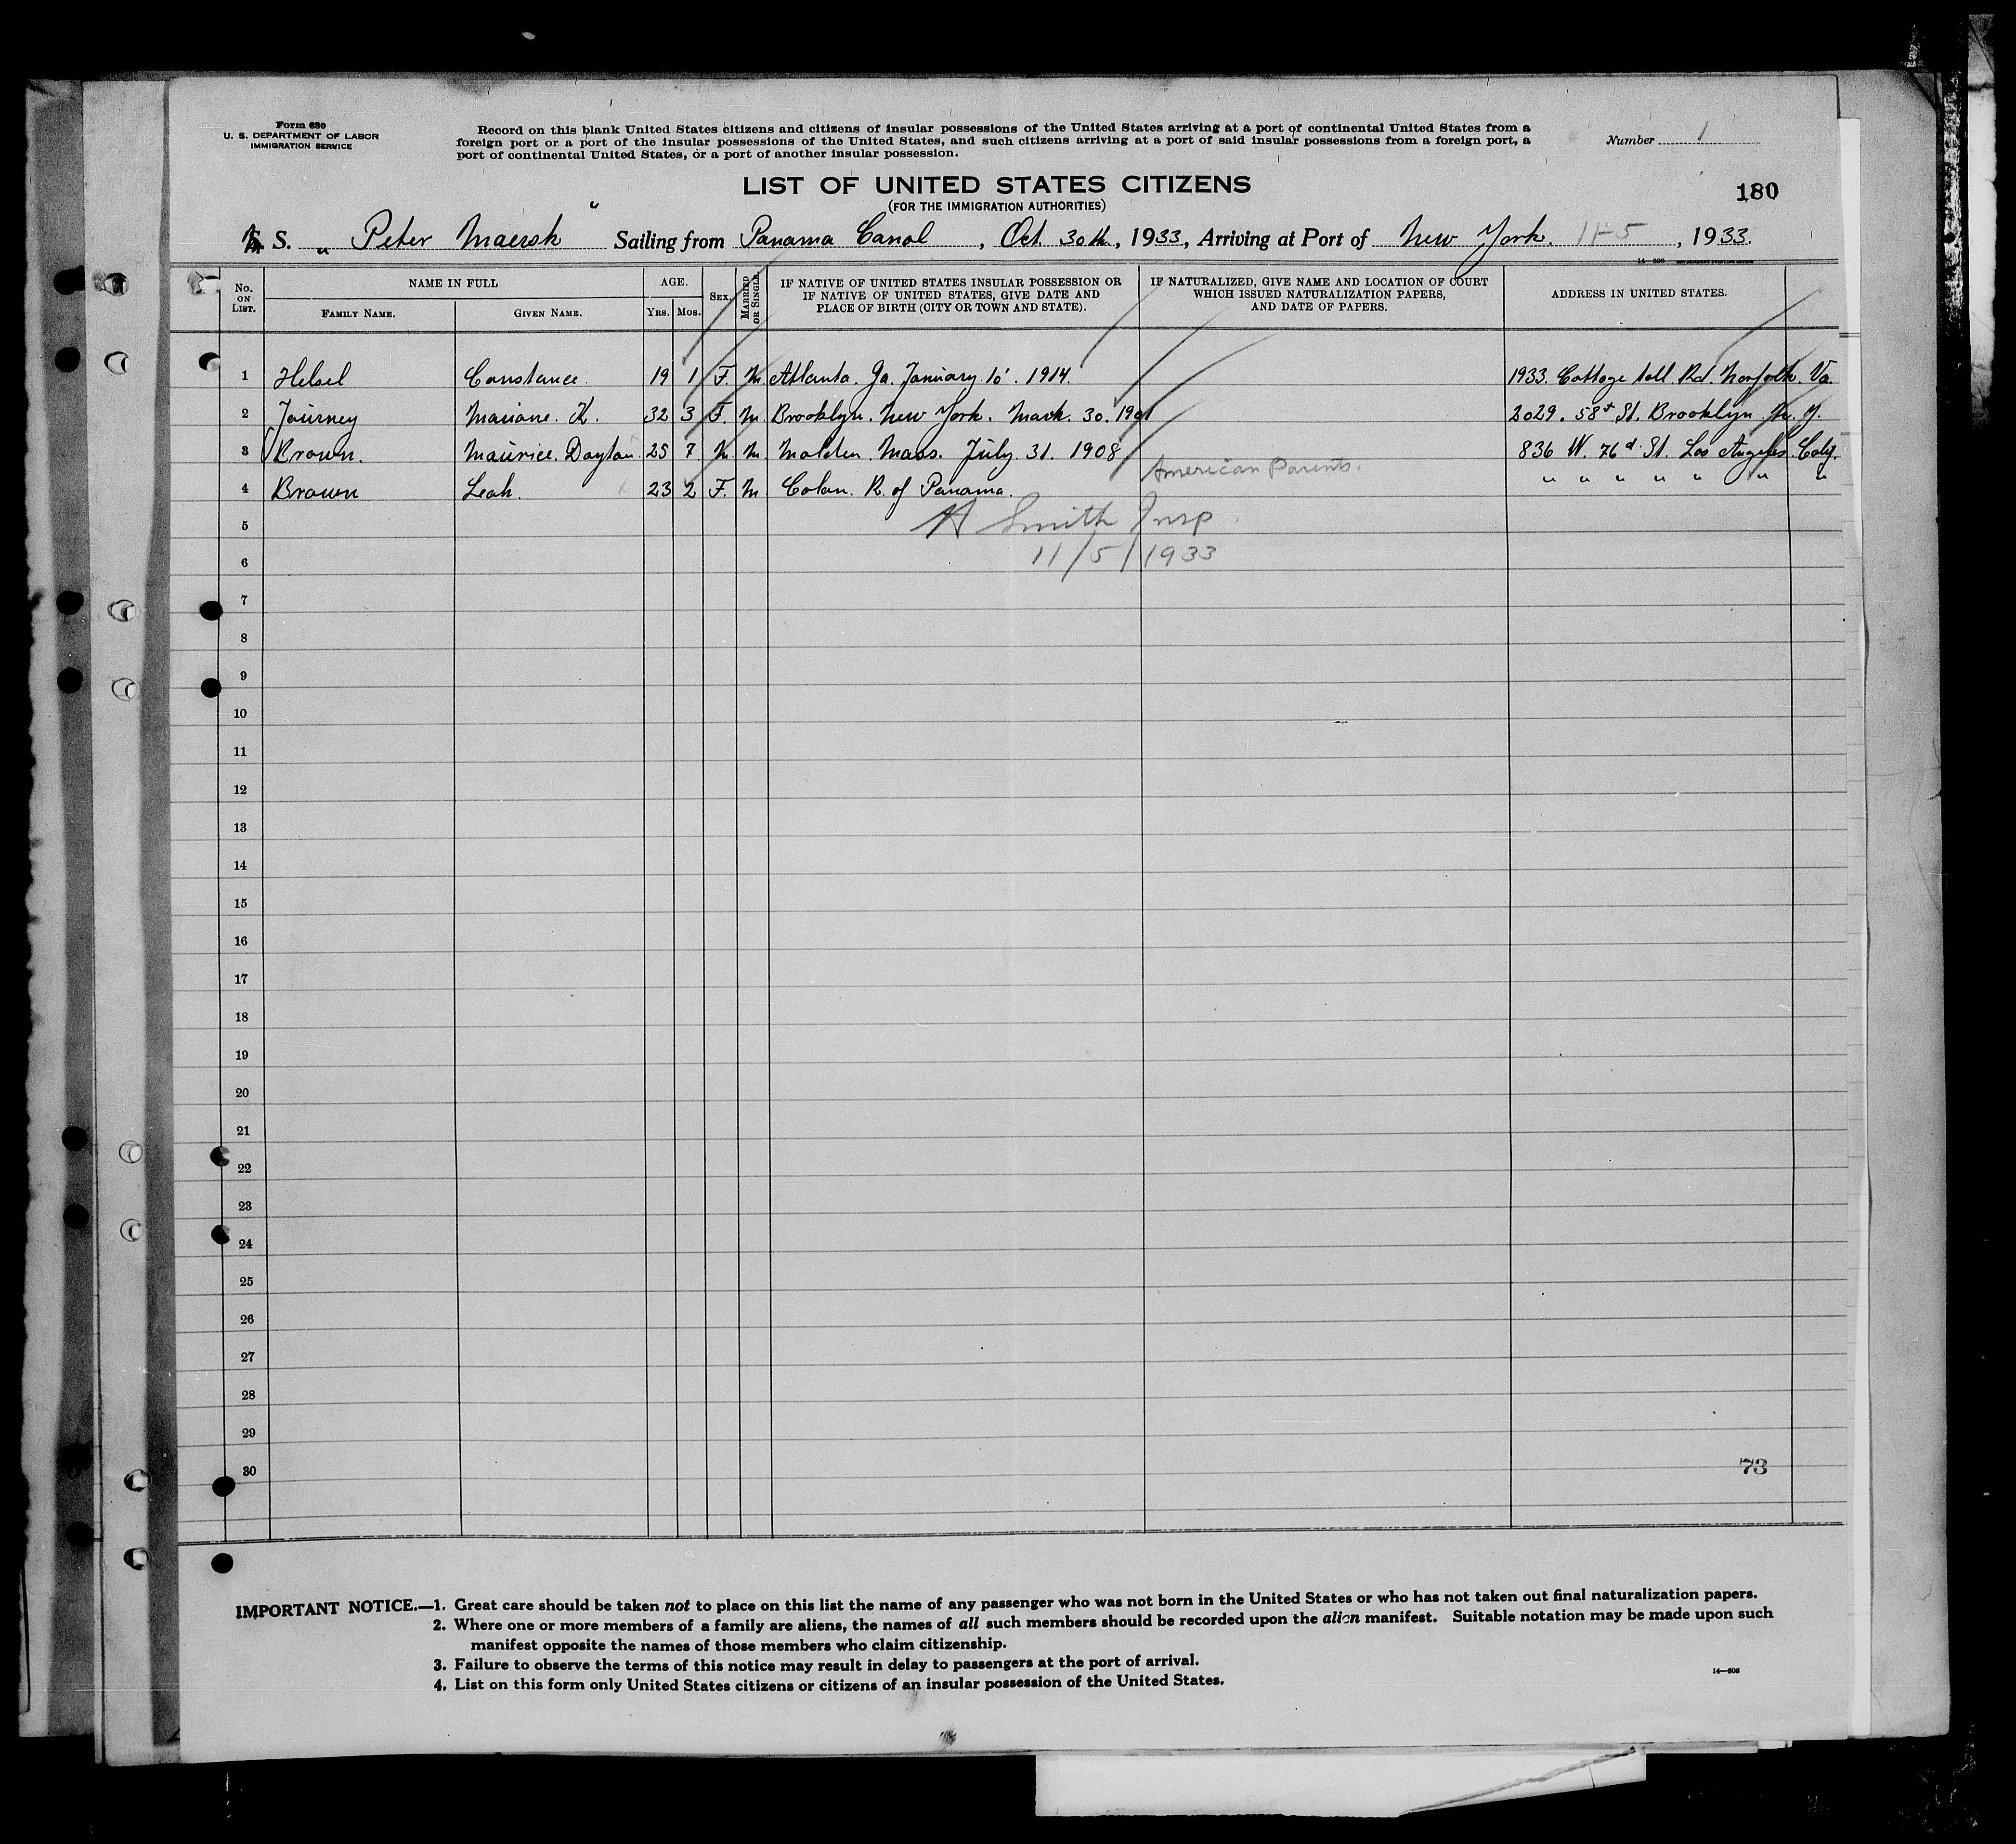 Form 630
U. S. DEPARTMENT OF LABOR
IMMIGRATION SERVICE
Record on this blank United States citizens and citizens of insular possessions of the United States arriving at a port of continental United States from a
foreign port or a port of the insular possessions of the United States, and such citizens arriving at a port of said insular possessions from a foreign port, a
port of continental United States, or a port of another insular possession.
Number 1
LIST OF UNITED STATES CITIZENS
(FOR THE IMMIGRATION AUTHORITIES)
180
M. S. „ Peter Maersk " Sailing from Panama Canal, Oct. 30th, 1933, Arriving at Port of New York. 11-5, 1933.
No. ON LIST. NAME IN FULL FAMILY NAME. GIVEN NAME. AGE. YRS. MOS. SEX. MARRIED OR SINGLE. IF NATIVE OF UNITED STATES INSULAR POSSESSION OR IF NATIVE OF UNITED STATES, GIVE DATE AND PLACE OF BIRTH (CITY OR TOWN AND STATE). IF NATURALIZED, GIVE NAME AND LOCATION OF COURT WHICH ISSUED NATURALIZATION PAPERS, AND DATE OF PAPERS. ADDRESS IN UNITED STATES.
1 Helsel Constance. 19 1 F. M. Atlanta. Ga. January 10. 1914. 1933. Cottage toll Rd. Norfolk. Va.
2 Journey Mariane. K. 32 3 F. M. Brooklyn. New York. March. 30. 1901 2029. 58t St. Brooklyn. N. Y.
3 Brown. Maurice. Dayton 25 7 M. M. Malden Mass. July. 31. 1908 836 W. 76d St. Los Angeles
American Parents.
4 Brown Leah. 23 2 F. M Colon. R. of Panama. " " " " " " "
5
A Smith Insp.
6
11/5/1933
7
8
9
10
11
12
13
14
15
16
17
18
19
20
21
22
23
24
25
26
27
28
29
30
73
IMPORTANT NOTICE.—1. Great care should be taken not to place on this list the name of any passenger who was not born in the United States or who has not taken out final naturalization papers.
2. Where one or more members of a family are aliens, the names of all such members should be recorded upon the alien manifest. Suitable notation may be made upon such
manifest opposite the names of those members who claim citizenship.
3. Failure to observe the terms of this notice may result in delay to passengers at the port of arrival.
4. List on this form only United States citizens or citizens of an insular possession of the United States.
14—608